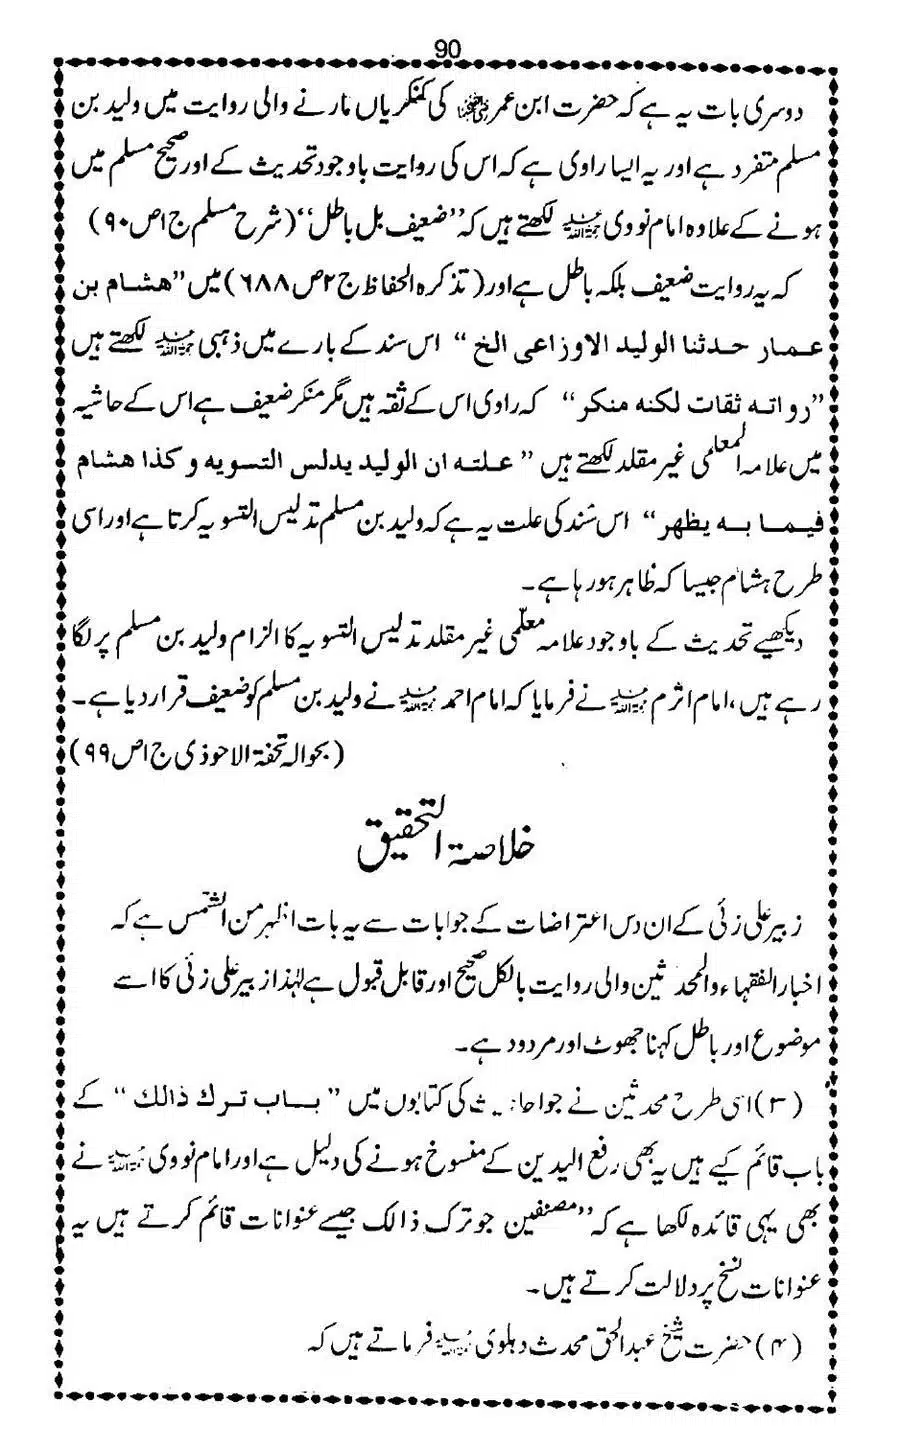 90
دوسری بات یہ ہے کہ حضرت ابن عمر رضی اللہ عنہما کی کنکریاں مارنے والی روایت میں ولید بن
مسلم متفرد ہے اور یہ ایسا راوی ہے کہ اس کی روایت باوجود تحدیث کے اور صحیح مسلم میں
ہونے کے علاوہ امام نووی رحمۃ اللہ علیہ لکھتے ہیں کہ ’’ضعیف بل باطل‘‘ (شرح مسلم ج۱ص۹۰)
کہ یہ روایت ضعیف بلکہ باطل ہے اور (تذکرہ الحفاظ ج۲ص۶۸۸) میں ’’ھشام بن
عمار حدثنا الولید الاوزاعی الخ‘‘ اس سند کے بارے میں ذہبی رحمۃ اللہ علیہ لکھتے ہیں
’’رواته ثقات لکنه منکر‘‘ کہ راوی اس کے ثقہ ہیں مگر منکر ضعیف ہے اس کے حاشیہ
میں علامہ المعلمی غیر مقلد لکھتے ہیں ’’علته ان الولید یدلس التسویه وکذا هشام
فیما به یظهر‘‘ اس سند کی علت یہ ہے کہ ولید بن مسلم تدلیس التسویہ کرتا ہے اور اسی
طرح ہشام جیسا کہ ظاہر ہو رہا ہے۔
دیکھیے تحدیث کے باوجود علامہ معلّمی غیر مقلد تدلیس التسویہ کا الزام ولید بن مسلم پر لگا
رہے ہیں، امام اثرم رحمۃ اللہ علیہ نے فرمایا کہ امام احمد رحمۃ اللہ علیہ نے ولید بن مسلم کو ضعیف قرار دیا ہے۔
(بحوالہ تحفۃ الاحوذی ج۱ص۹۹)
خلاصۃ التحقیق
زبیر علی زئی کے ان دس اعتراضات کے جوابات سے یہ بات اظہر من الشمس ہے کہ
اخبار الفقہاء والمحدثین والی روایت بالکل صحیح اور قابل قبول ہے لہٰذا زبیر علی زئی کا اسے
موضوع اور باطل کہنا جھوٹ اور مردود ہے۔
(۳) اسی طرح محدثین نے جو احادیث کی کتابوں میں ’’باب ترك ذالك‘‘ کے
باب قائم کیے ہیں یہ بھی رفع الیدین کے منسوخ ہونے کی دلیل ہے اور امام نووی رحمۃ اللہ علیہ نے
بھی یہی قائدہ لکھا ہے کہ ’’مصنفین جو ترک ذالک جیسے عنوانات قائم کرتے ہیں یہ
عنوانات نسخ پر دلالت کرتے ہیں۔
(۴) حضرت شیخ عبدالحق محدث دہلوی رحمۃ اللہ علیہ فرماتے ہیں کہ